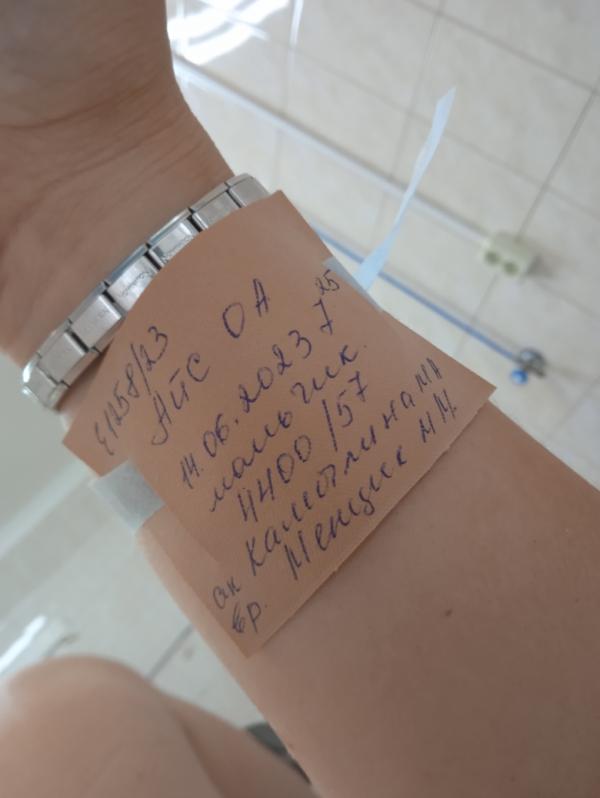 1258/23
Айс ОА
14.06.2023 7 25
мальчик.
4400/57
ак Камолина МА
вр. Менщик ММ.